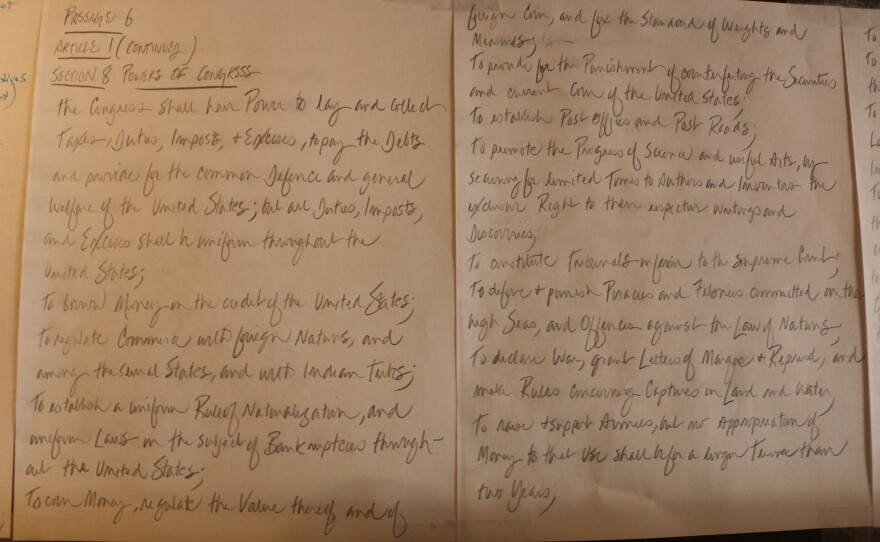 PASSAGE 6
ARTICLE 1 (CONTINUED)
SECTION 8 POWERS OF CONGRESS
The Congress shall have Power to lay and collect
Taxes, Duties, Imposts, + Excises, to pay the Debts
and provide for the common Defence and general
Welfare of the United States; but all Duties, Imposts,
and Excises shall be uniform throughout the
United States;
To borrow Money on the credit of the United States;
To regulate Commerce with foreign Nations, and
among the several States, and with Indian Tribes;
To establish a uniform Rule of Naturalization, and
uniform Laws on the subject of Bankruptcies through-
out the United States;
To coin Money, regulate the Value thereof and of
foreign Coin, and fix the Standard of Weights and
Measures;
To provide for the Punishment of counterfeiting the Securities
and current Coin of the United States;
To establish Post Offices and Post Roads;
To promote the Progress of Science and useful Arts, by
securing for limited Times to Authors and Inventors the
exclusive Right to their respective writings and
Discoveries;
To constitute Tribunals inferior to the Supreme Court;
To define + punish Piracies and Felonies committed on the
high Seas, and Offences against the Law of Nations;
To declare War, grant Letters of Marque + Reprisal, and
make Rules concerning Captures on Land and Water;
To raise + support Armies, but no Appropriation of
Money to that Use shall be for a longer Term than
two Years;
To
To
th
To